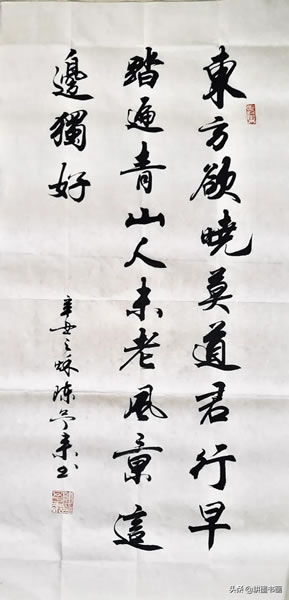 東方欲曉莫道君行早
踏遍青山人未老風景這
邊獨好
辛丑之秋陈予来书
头条@耕璽书画